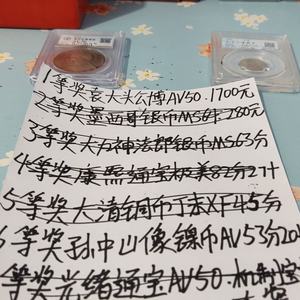 1等奖袁大头公博AV50.1700元
2等奖墨西哥银币MS64 280元
3等奖大力神法郎银币MS63分
4等奖康熙通宝极美82分27十
5等奖大清铜币丁未XF45分
6等奖孙中山像镍币AV53分20
等奖光绪通宝AV50.机制